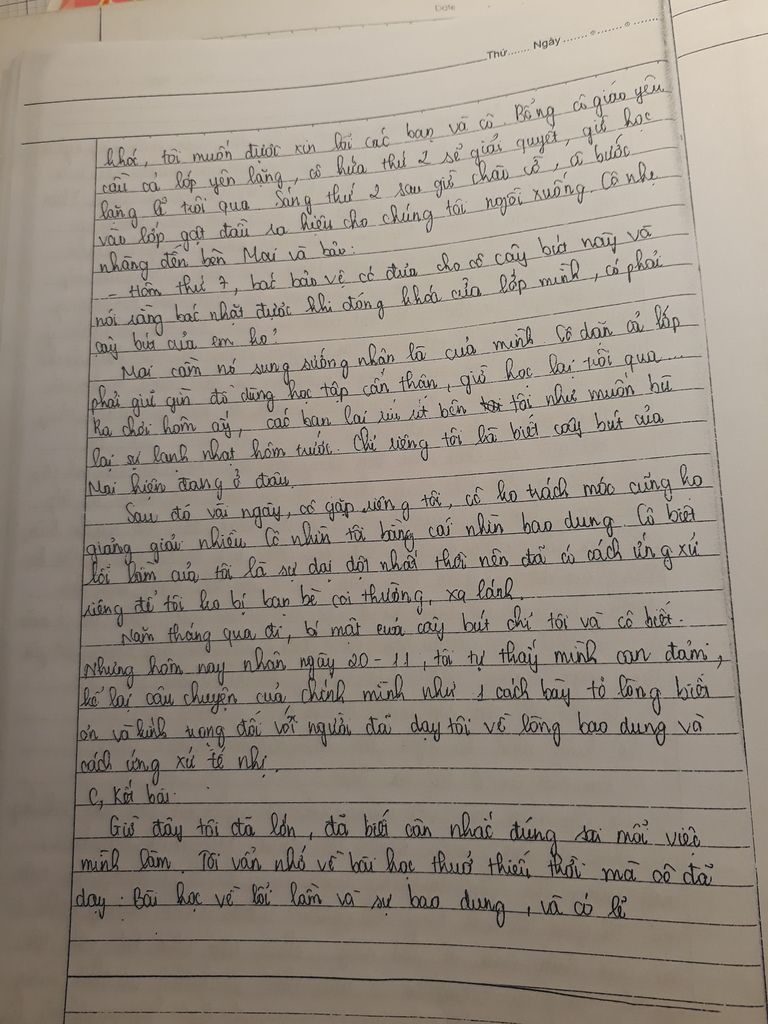 Date
Thứ....... Ngày ....... ○ ....... ○ .......
khóc, tôi muốn được xin lỗi các bạn và cô. Bỗng cô giáo yêu
cầu cả lớp yên lặng, cô hứa thứ 2 sẽ giải quyết, giờ học
lặng lẽ trôi qua. Sáng thứ 2 sau giờ chào cờ, cô bước
vào lớp gật đầu ra hiệu cho chúng tôi ngồi xuống. Cô nhẹ
nhàng đến bên Mai và bảo:
- Hôm thứ 7, bác bảo vệ có đưa cho cô cây bút này và
nói rằng bác nhặt được khi đóng khóa cửa lớp mình, có phải
cây bút của em ko?
Mai cầm nó sung sướng nhận là của mình. Cô dặn cả lớp
phải giữ gìn đồ dùng học tập cẩn thận, giờ học lại trôi qua...
Ra chơi hôm ấy, các bạn lại ríu rít bên tôi như muốn bù
lại sự lạnh nhạt hôm trước. Chỉ riêng tôi là biết cây bút của
Mai hiện đang ở đâu.
Sau đó vài ngày, cô gặp riêng tôi, cô ko trách móc cũng ko
giảng giải nhiều. Cô nhìn tôi bằng cái nhìn bao dung. Cô biết
lỗi lầm của tôi là sự dại dột nhất thời nên đã có cách ứng xử
riêng để tôi ko bị bạn bè coi thường, xa lánh.
Năm tháng qua đi, bí mật cuả cây bút chỉ tôi và cô biết.
Nhưng hôm nay nhân ngày 20-11, tôi tự thấy mình can đảm,
kể lại câu chuyện của chính mình như 1 cách bày tỏ lòng biết
ơn và kính trọng đối với người đã dạy tôi về lòng bao dung và
cách ứng xử tế nhị.
C, Kết bài:
Giờ đây tôi đã lớn, đã biết cân nhắc đúng sai mỗi việc
mình làm. Tôi vẫn nhớ về bài học thuở thiếu thời mà cô đã
dạy: Bài học về lỗi lầm và sự bao dung, và có lẽ